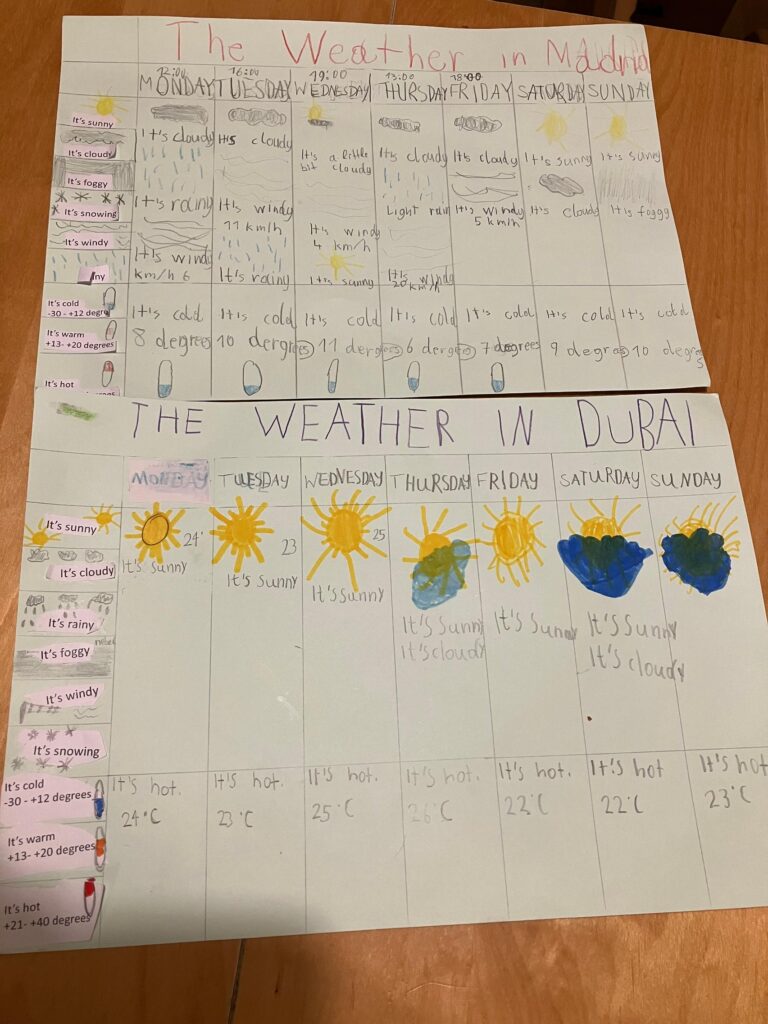 The Weather in Madrid
12:00 16:00 19:00 13:00 18:00
MONDAY TUESDAY WEDNESDAY THURSDAY FRIDAY SATURDAY SUNDAY
It's sunny
It's cloudy
It's foggy
It's snowing
It's windy
ny
It's cold
-30 - +12 degre
It's warm
+13- +20 degrees
It's hot
It's cloudy
It's rainy
It's windy
km/h 6
It's cold
8 degrees
It's cloudy
It's windy
11 km/h
It's rainy
It's cold
10 dergrees
It's a little
bit cloudy
It's windy
4 km/h
It's sunny
It's cold
11 dergrees
It's cloudy
Light rain
It's windy
20 km/h
It's cold
6 dergrees
It's cloudy
It's windy
5 km/h
It's cold
7 degrees
It's sunny
It's cloudy
It's cold
9 degrees
It's sunny
It is foggy
It's cold
10 degrees
THE WEATHER IN DUBAI
MONDAY TUESDAY WEDNESDAY THURSDAY FRIDAY SATURDAY SUNDAY
It's sunny
It's cloudy
It's rainy
nebel
It's foggy
It's windy
It's snowing
It's cold
-30 - +12 degrees
It's warm
+13- +20 degrees
It's hot
+21- +40 degrees
24°
It's sunny
It's hot.
24°C
23
It's sunny
It's hot.
23°C
25
It's sunny
It's hot.
25°C
It's sunny
It's cloudy
It's hot.
26°C
It's sunny
It's hot.
22°C
It's sunny
It's cloudy
It's hot
22°C
It's hot
23°C